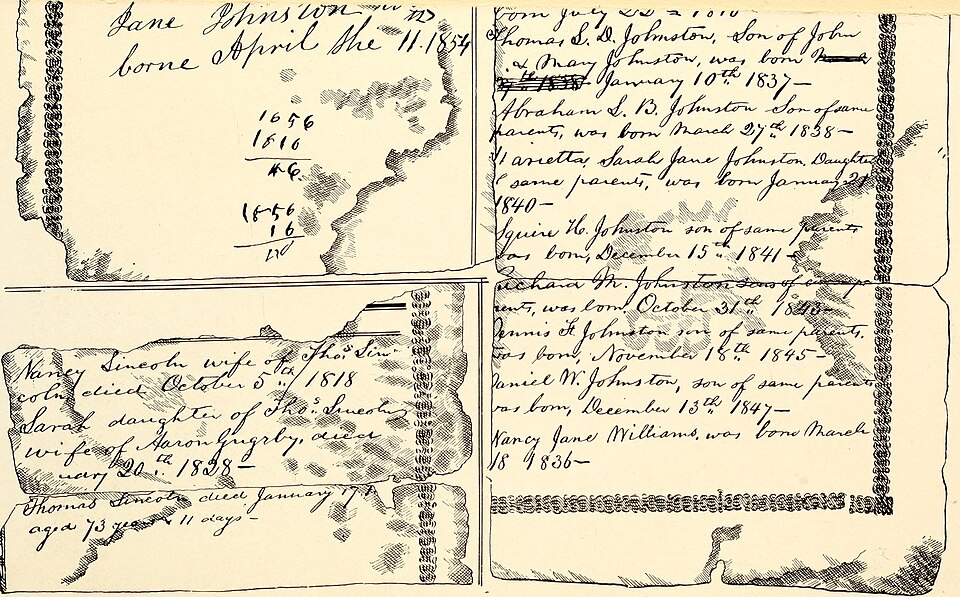 Jane Johnston
borne April the 11. 1854
1856
1810
46
1856
16
Nancy Lincoln wife of Thos. Lin-
coln died October 5th 1818
Sarah daughter of Thos. Lincoln
wife of Aaron Grigsby, died
uary 20th 1828—
Thomas Lincoln died January 17th
aged 73 years & 11 days—
born July 22nd 1816
Thomas L. D. Johnston, Son of John
. & Mary Johnston, was born
January 10th 1837—
Abraham L. B. Johnston Son of same
parents, was born March 27th 1838—
Marietta, Sarah Jane Johnston, Daughter
same parents, was born January 21
1840—
Squire H. Johnston son of same parents
was born, December 15th 1841—
Richard M. Johnston son of same pa
rents, was born, October 31st 1843—
Dennis F. Johnston son of same parents,
was born, November 18th 1845—
Daniel W. Johnston, son of same parents
was born, December 13th 1847—
Nancy Jane Williams, was born March
18 1836—